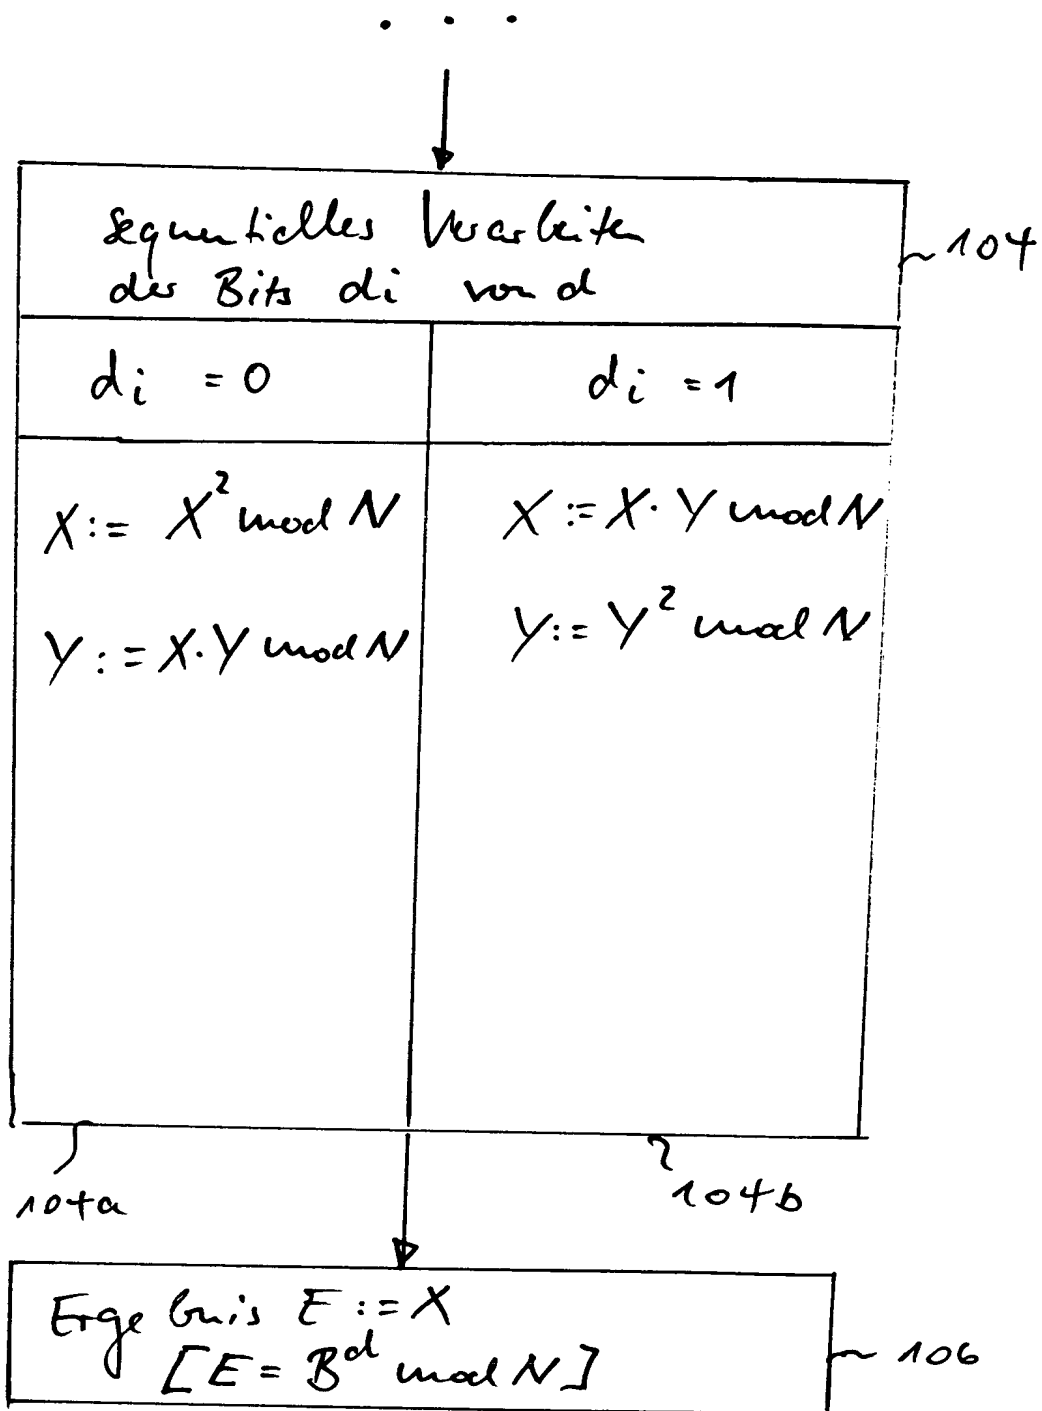 . . .
sequentielles Verarbeiten
der Bits di von d
104
di = 0
di = 1
X := X² mod N
X := X · Y mod N
Y := X · Y mod N
Y := Y² mod N
104a
104b
Ergebnis E := X
[E = Bᵈ mod N]
106